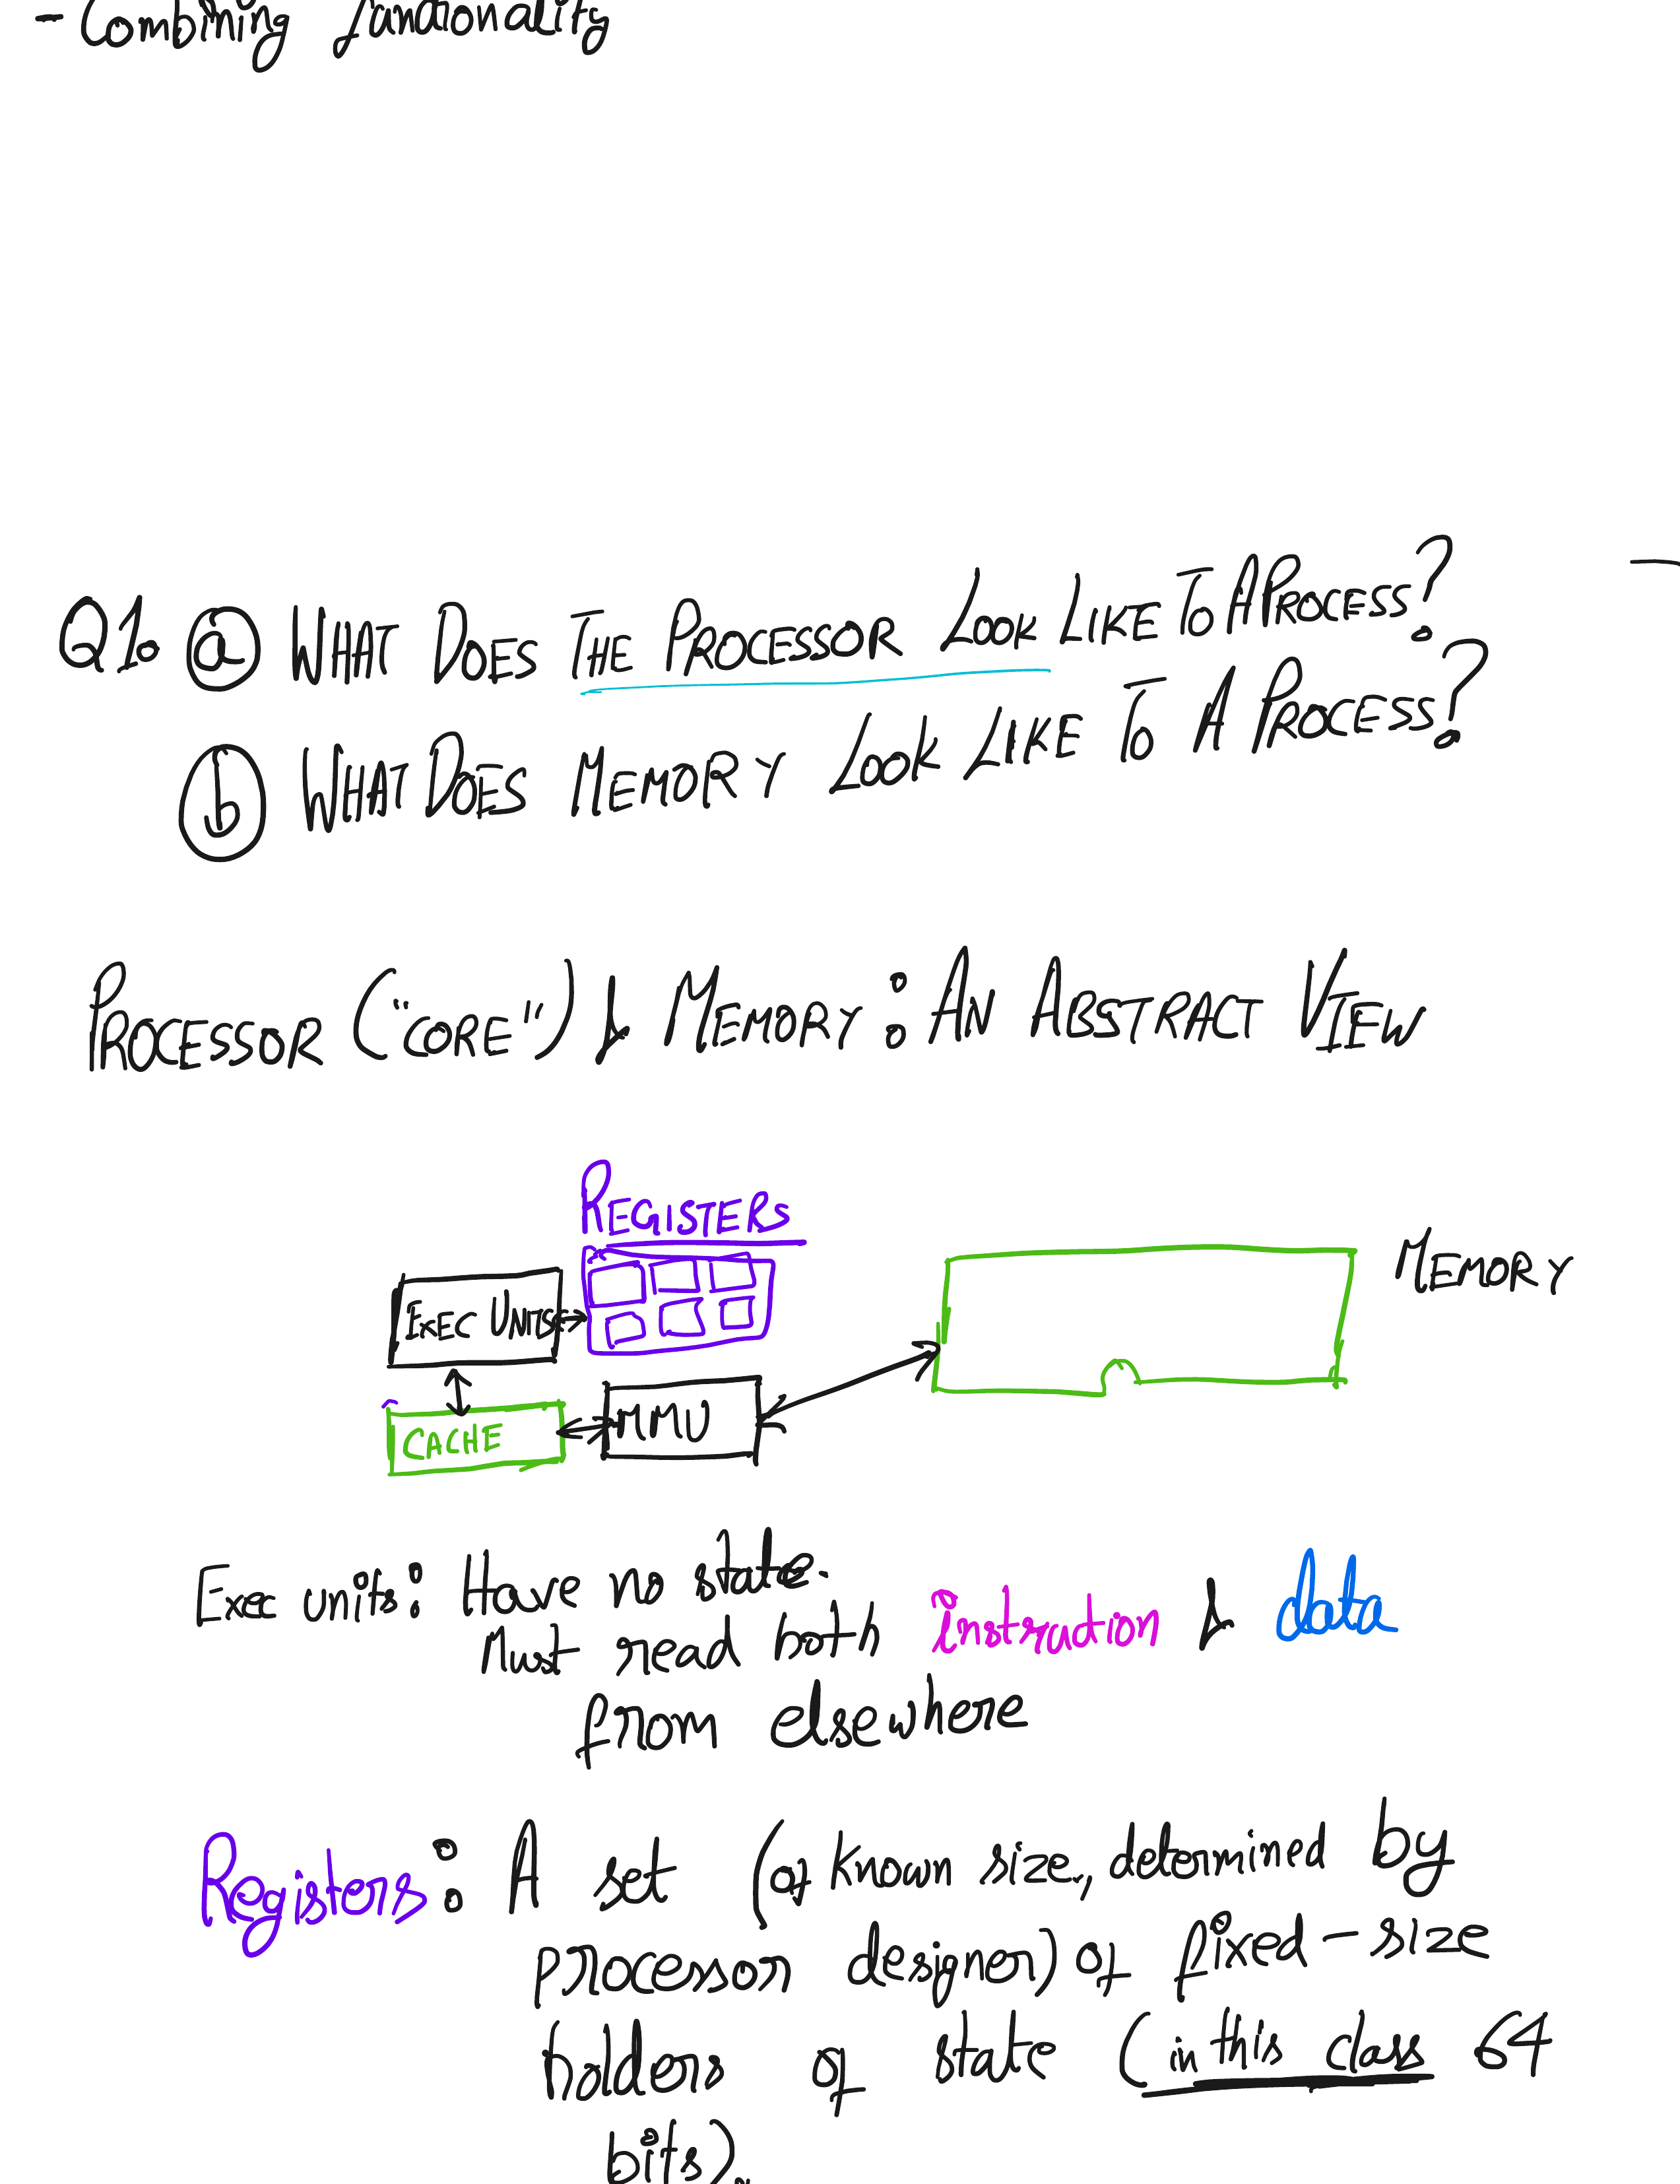 - Combining functionality
Q1. a WHAT DOES THE PROCESSOR LOOK LIKE TO A PROCESS?
b WHAT DOES MEMORY LOOK LIKE TO A PROCESS?
PROCESSOR ("CORE") & MEMORY: AN ABSTRACT VIEW
REGISTERS
MEMORY
EXEC UNITS
MMU
CACHE
Exec units: Have no state.
Must read both instruction & data
from elsewhere
Registers: A set (of known size, determined by
processor designer) of fixed-size
holders of state (in this class 64
bits).